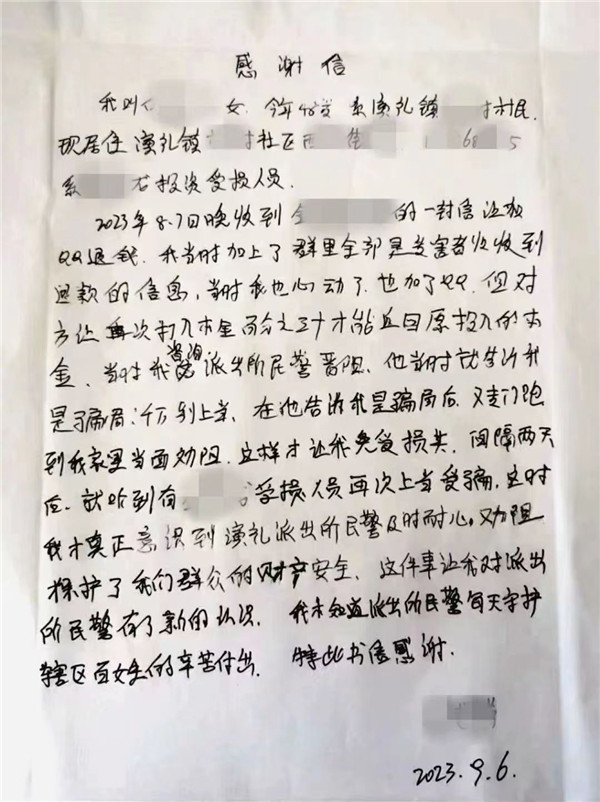 感谢信
我叫 女. 今年48岁 系溪礼镇 村村民.
现居住溪礼镇 社区 68 5
系 石投资受损人员.
2023年8.7日晚收到 的一封信让加
QQ退钱. 我当时加上了群里全部是受害者收到
退款的信息, 当时我也心动了. 也加了QQ. 但对
方让再次打入本金百分之三十才能返回原投入的本
金、当时我咨询派出所民警 晋阻、他当时就告诉我
是骗局; 千万别上当. 在他告诉我是骗局后. 又专门跑
到我家里当面劝阻. 这样才让我免受损失. 间隔两天
后. 就听到有 受损人员再次上当受骗. 这时
我才真正意识到溪礼派出所民警及时耐心劝阻
保护了我们群众的财产安全. 这件事让我对派出
所民警有了新的认识. 我才知道派出所民警每天守护
辖区百姓的辛苦付出. 特此书信感谢.
2023.9.6.